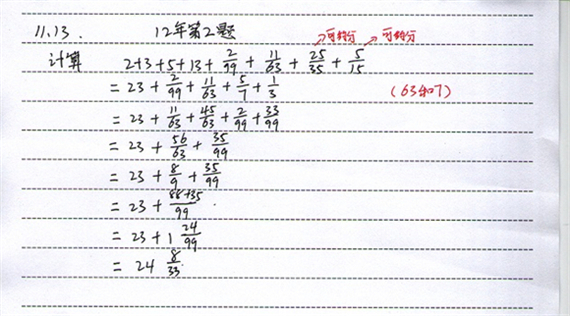 11.13. 12年第2题 可约分 可约分
计算 2+3+5+13+2/99+11/63+25/35+5/15
=23+2/99+11/63+5/7+1/3 (63和7)
=23+11/63+45/63+2/99+33/99
=23+56/63+35/99
=23+8/9+35/99
=23+(88+35)/99
=23+1 24/99
=24 8/33